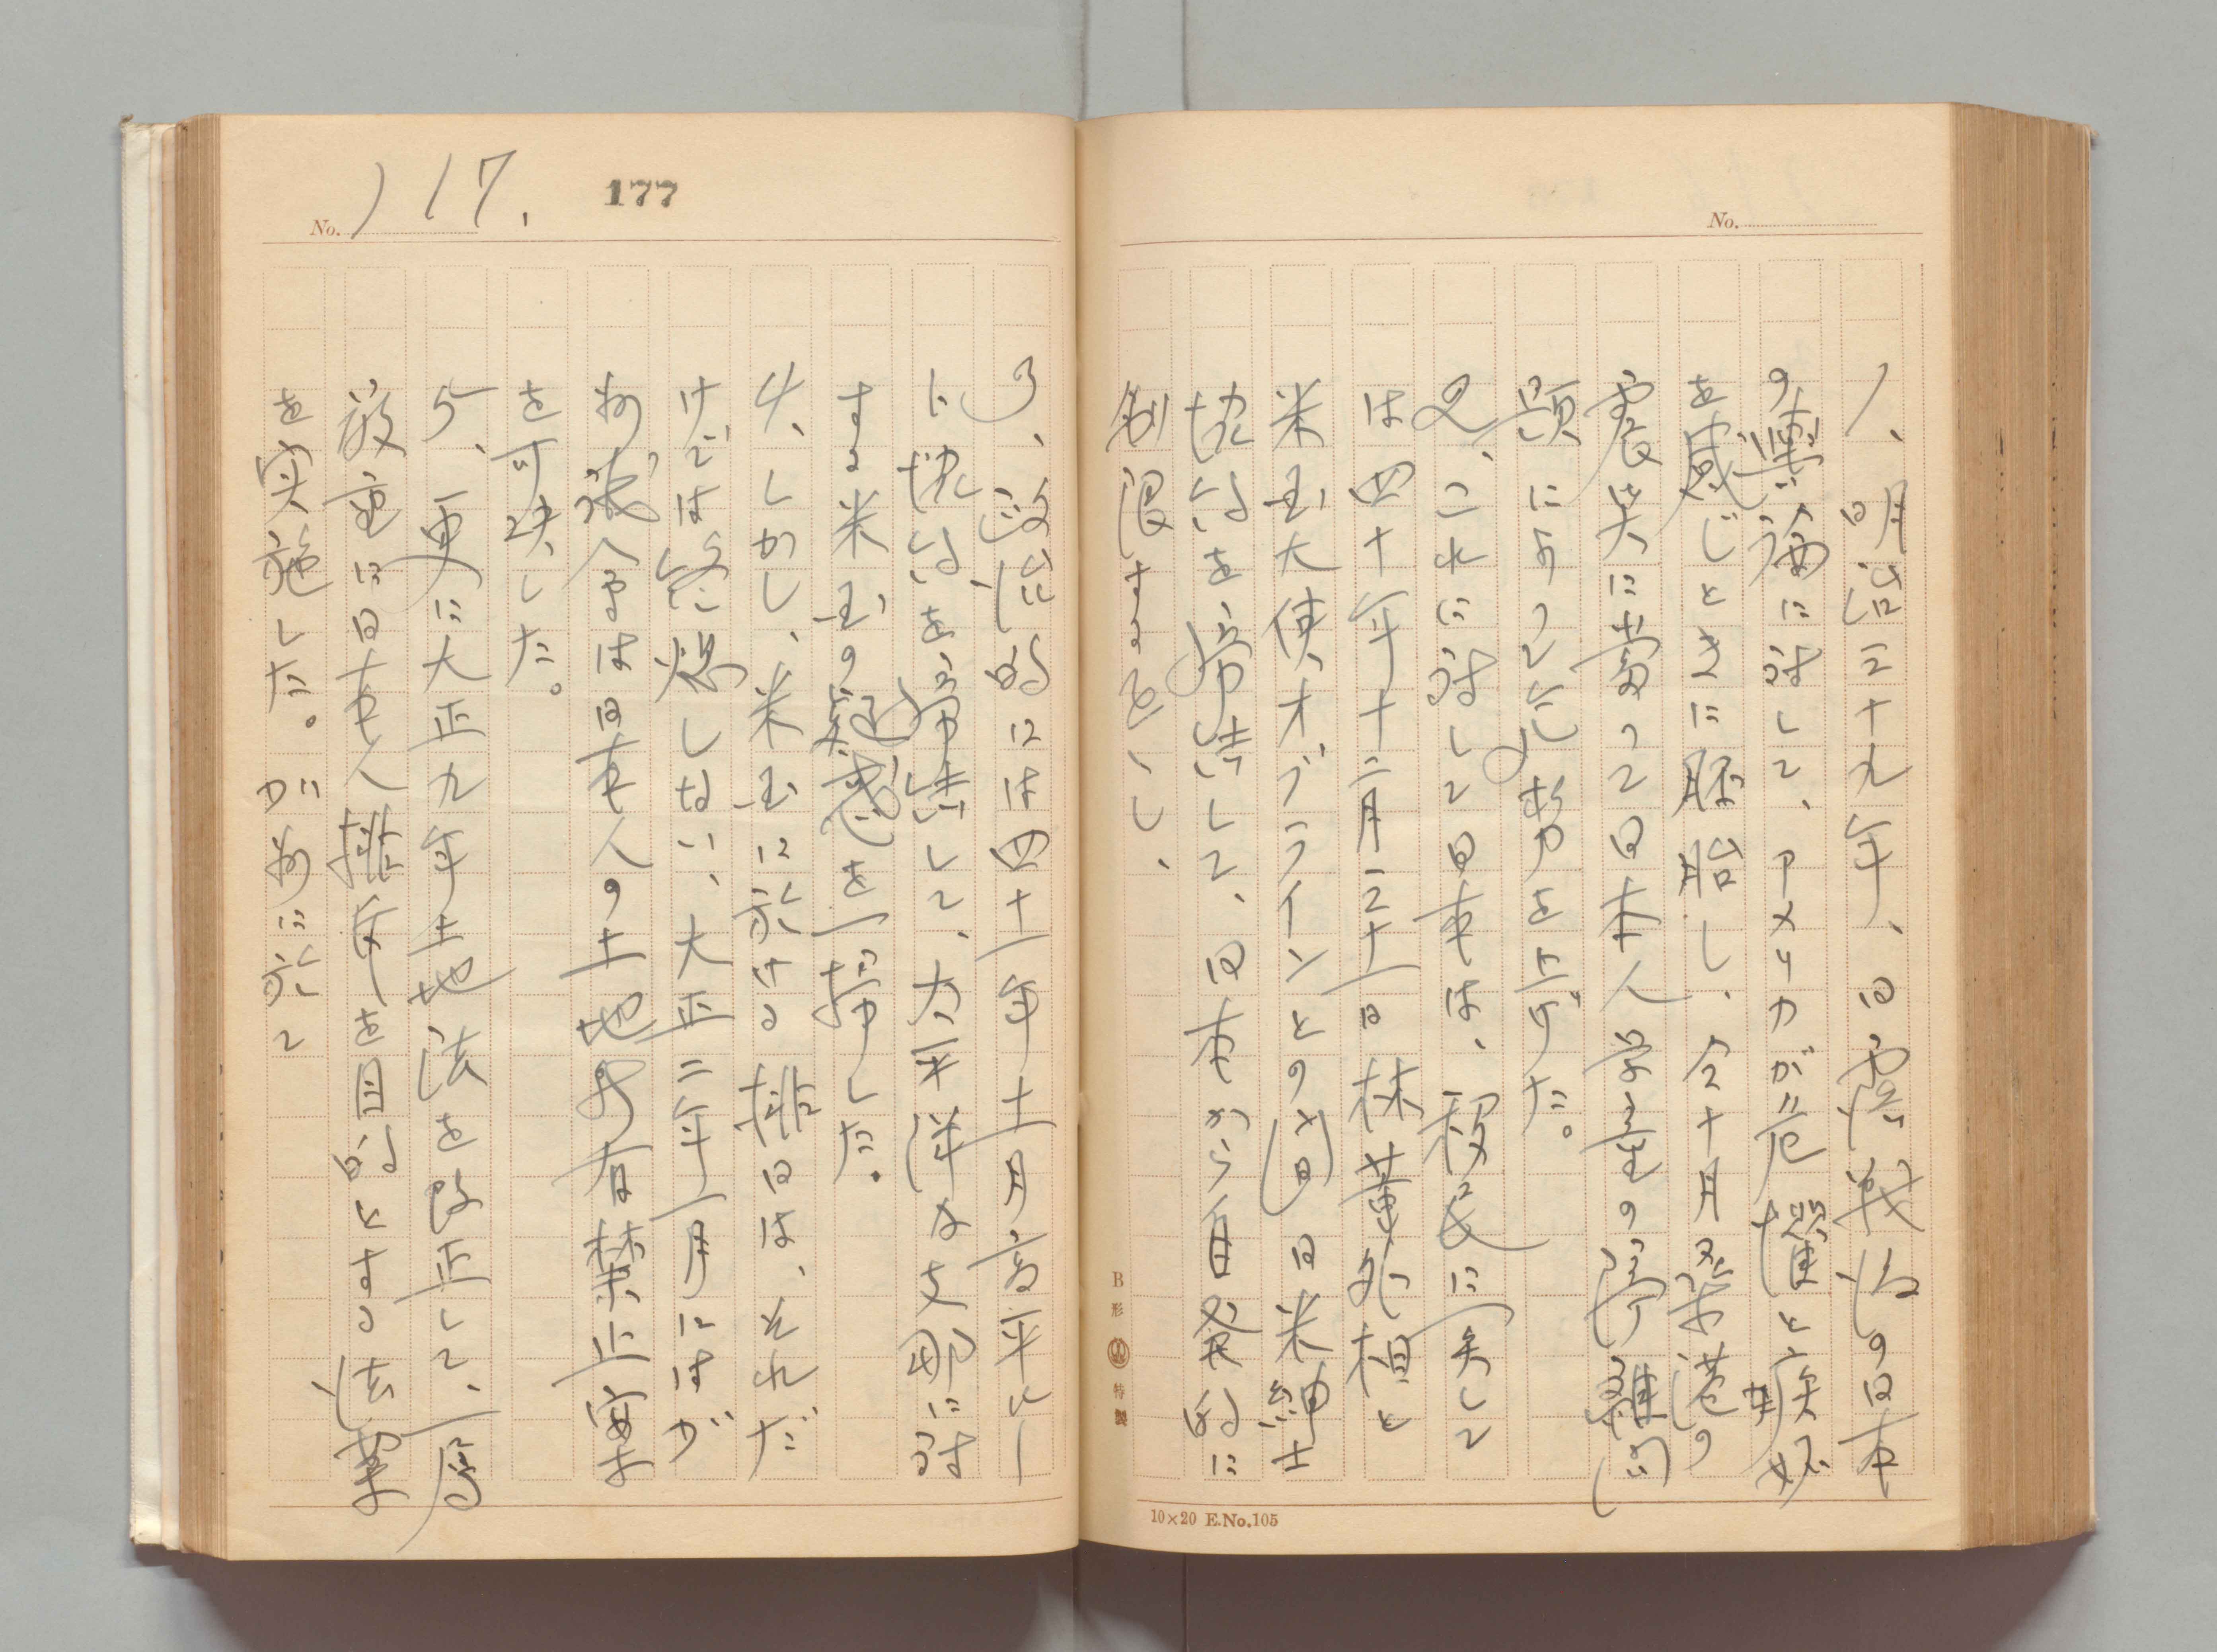 No.
1、明治三十九年、日露戦後の日本
の興隆に対して、アメリカが危懼と疾妬
を感じときに胚胎し、今十月桑港の
震災に当って日本人学童の学校離問
題によって気勢を上げた。
2、これに対して日本は、移民に関して
は四十年十二月三十一日林董外相と
米国大使オブラインとの間日米紳士
協約を締結して、日本から自発的に
制限することゝし、
B形 特製
10×20 E.No.105
177
No. 117.
3、政治的には四十一年十一月高平ルー
ト協約を締結して、太平洋及支那に対
する米国の疑惑を一掃した。
4、しかし、米国に於ける排日は、それだ
けでは終熄しない、大正二年一月にはが
州議会は日本人の土地所有禁止案
を可決した。
5、更に大正九年土地法を改正して、
殺直に日本人排斥を目的とする法案
を実施した。が州に於て